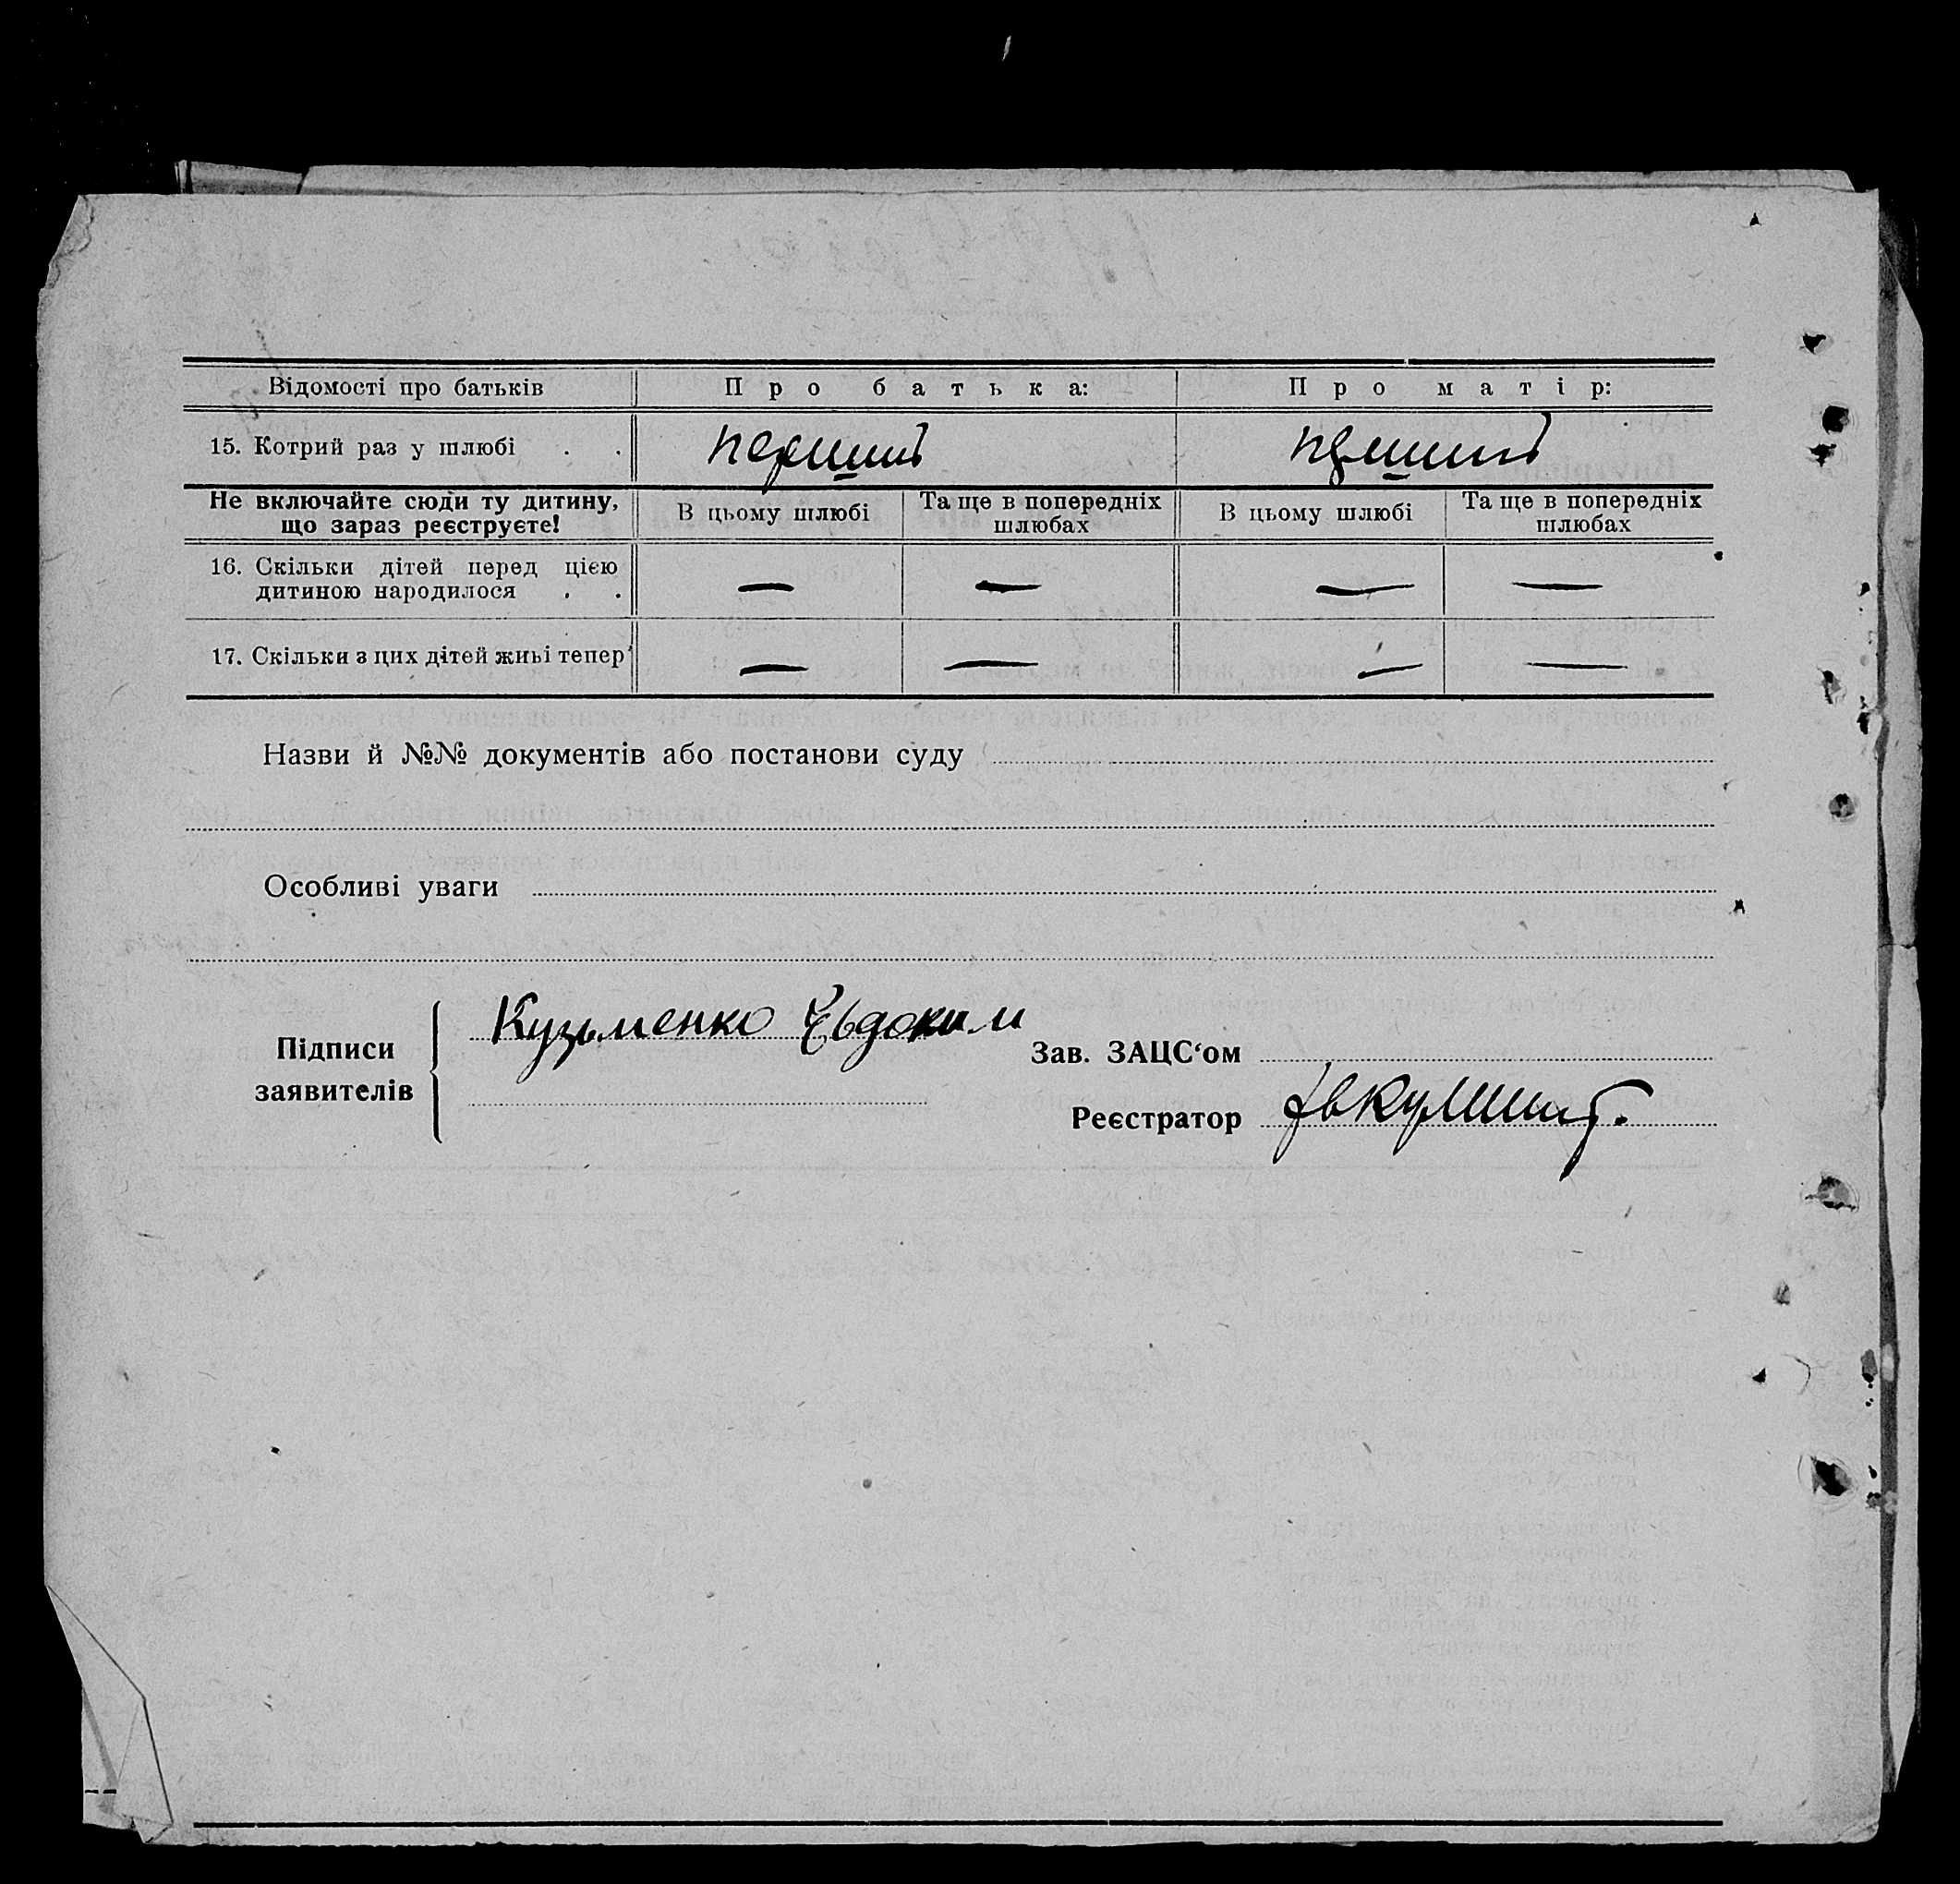 Відомості про батьків П р о б а т ь к а: П р о м а т і р:
15. Котрий раз у шлюбі . . перший перший
Не включайте сюди ту дитину, що зараз реєструєте! В цьому шлюбі Та ще в попередніх шлюбах В цьому шлюбі Та ще в попередніх шлюбах
16. Скільки дітей перед цією дитиною народилося . . — — — —
17. Скільки з цих дітей живі тепер — — — —
Назви й №№ документів або постанови суду
Особливі уваги
Підписи заявителів Кузьменко Евдоким
Зав. ЗАЦС‘ом
Реєстратор